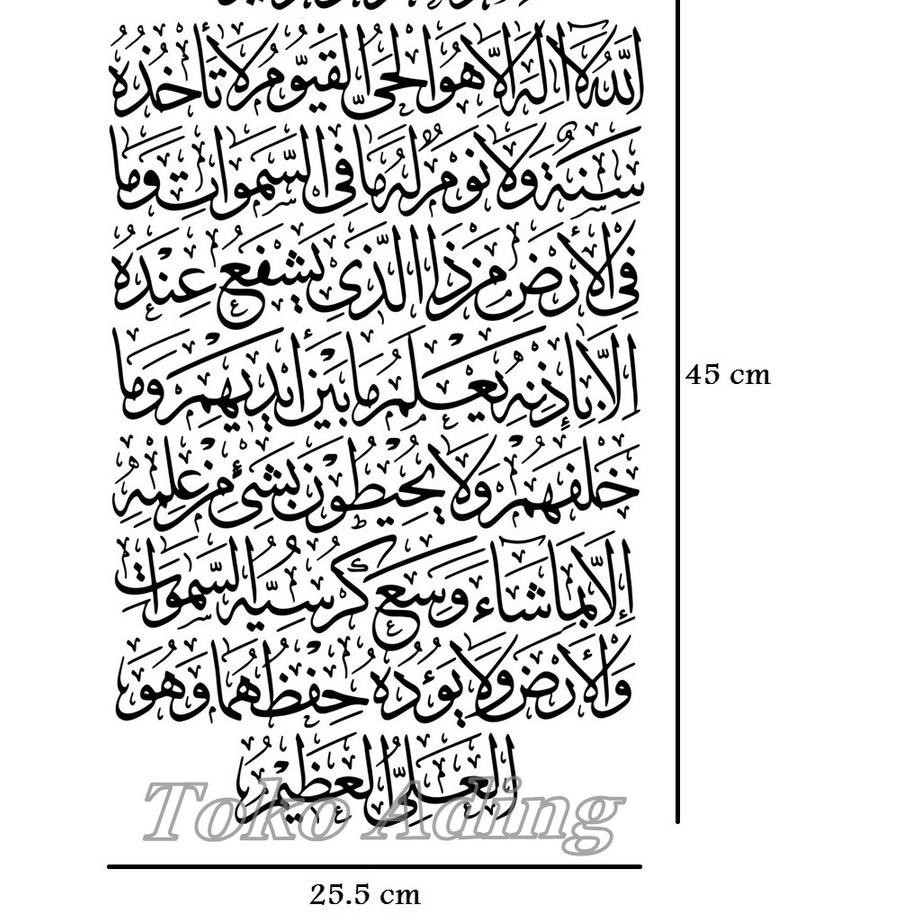 الله لا اله الا هو الحي القيوم لا تأخذه
سنة ولا نوم له ما في السموات وما
في الأرض من ذا الذي يشفع عنده
الا بإذنه يعلم ما بين ايديهم وما
خلفهم ولا يحيطون بشئ من علمه
إلا بما شاء وسع كرسيه السموات
والأرض ولا يؤده حفظهما وهو
العلي العظيم
Toko Ading
45 cm
25.5 cm